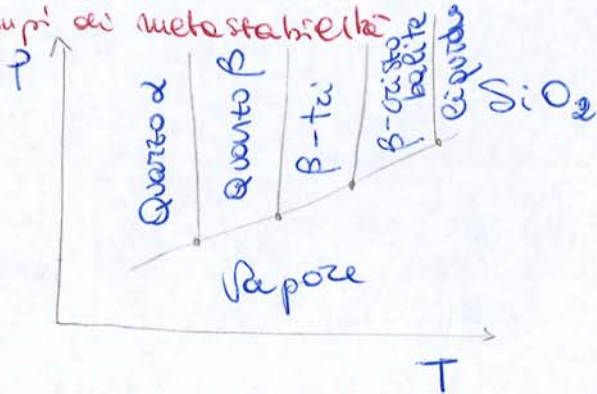 mpi di metastabilità
P
Quarzo α
Quarzo β
β-tri
β-cristo
balite
liquido
SiO₂
Vapore
T